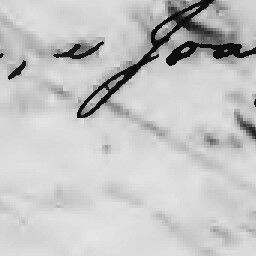 , e Joa